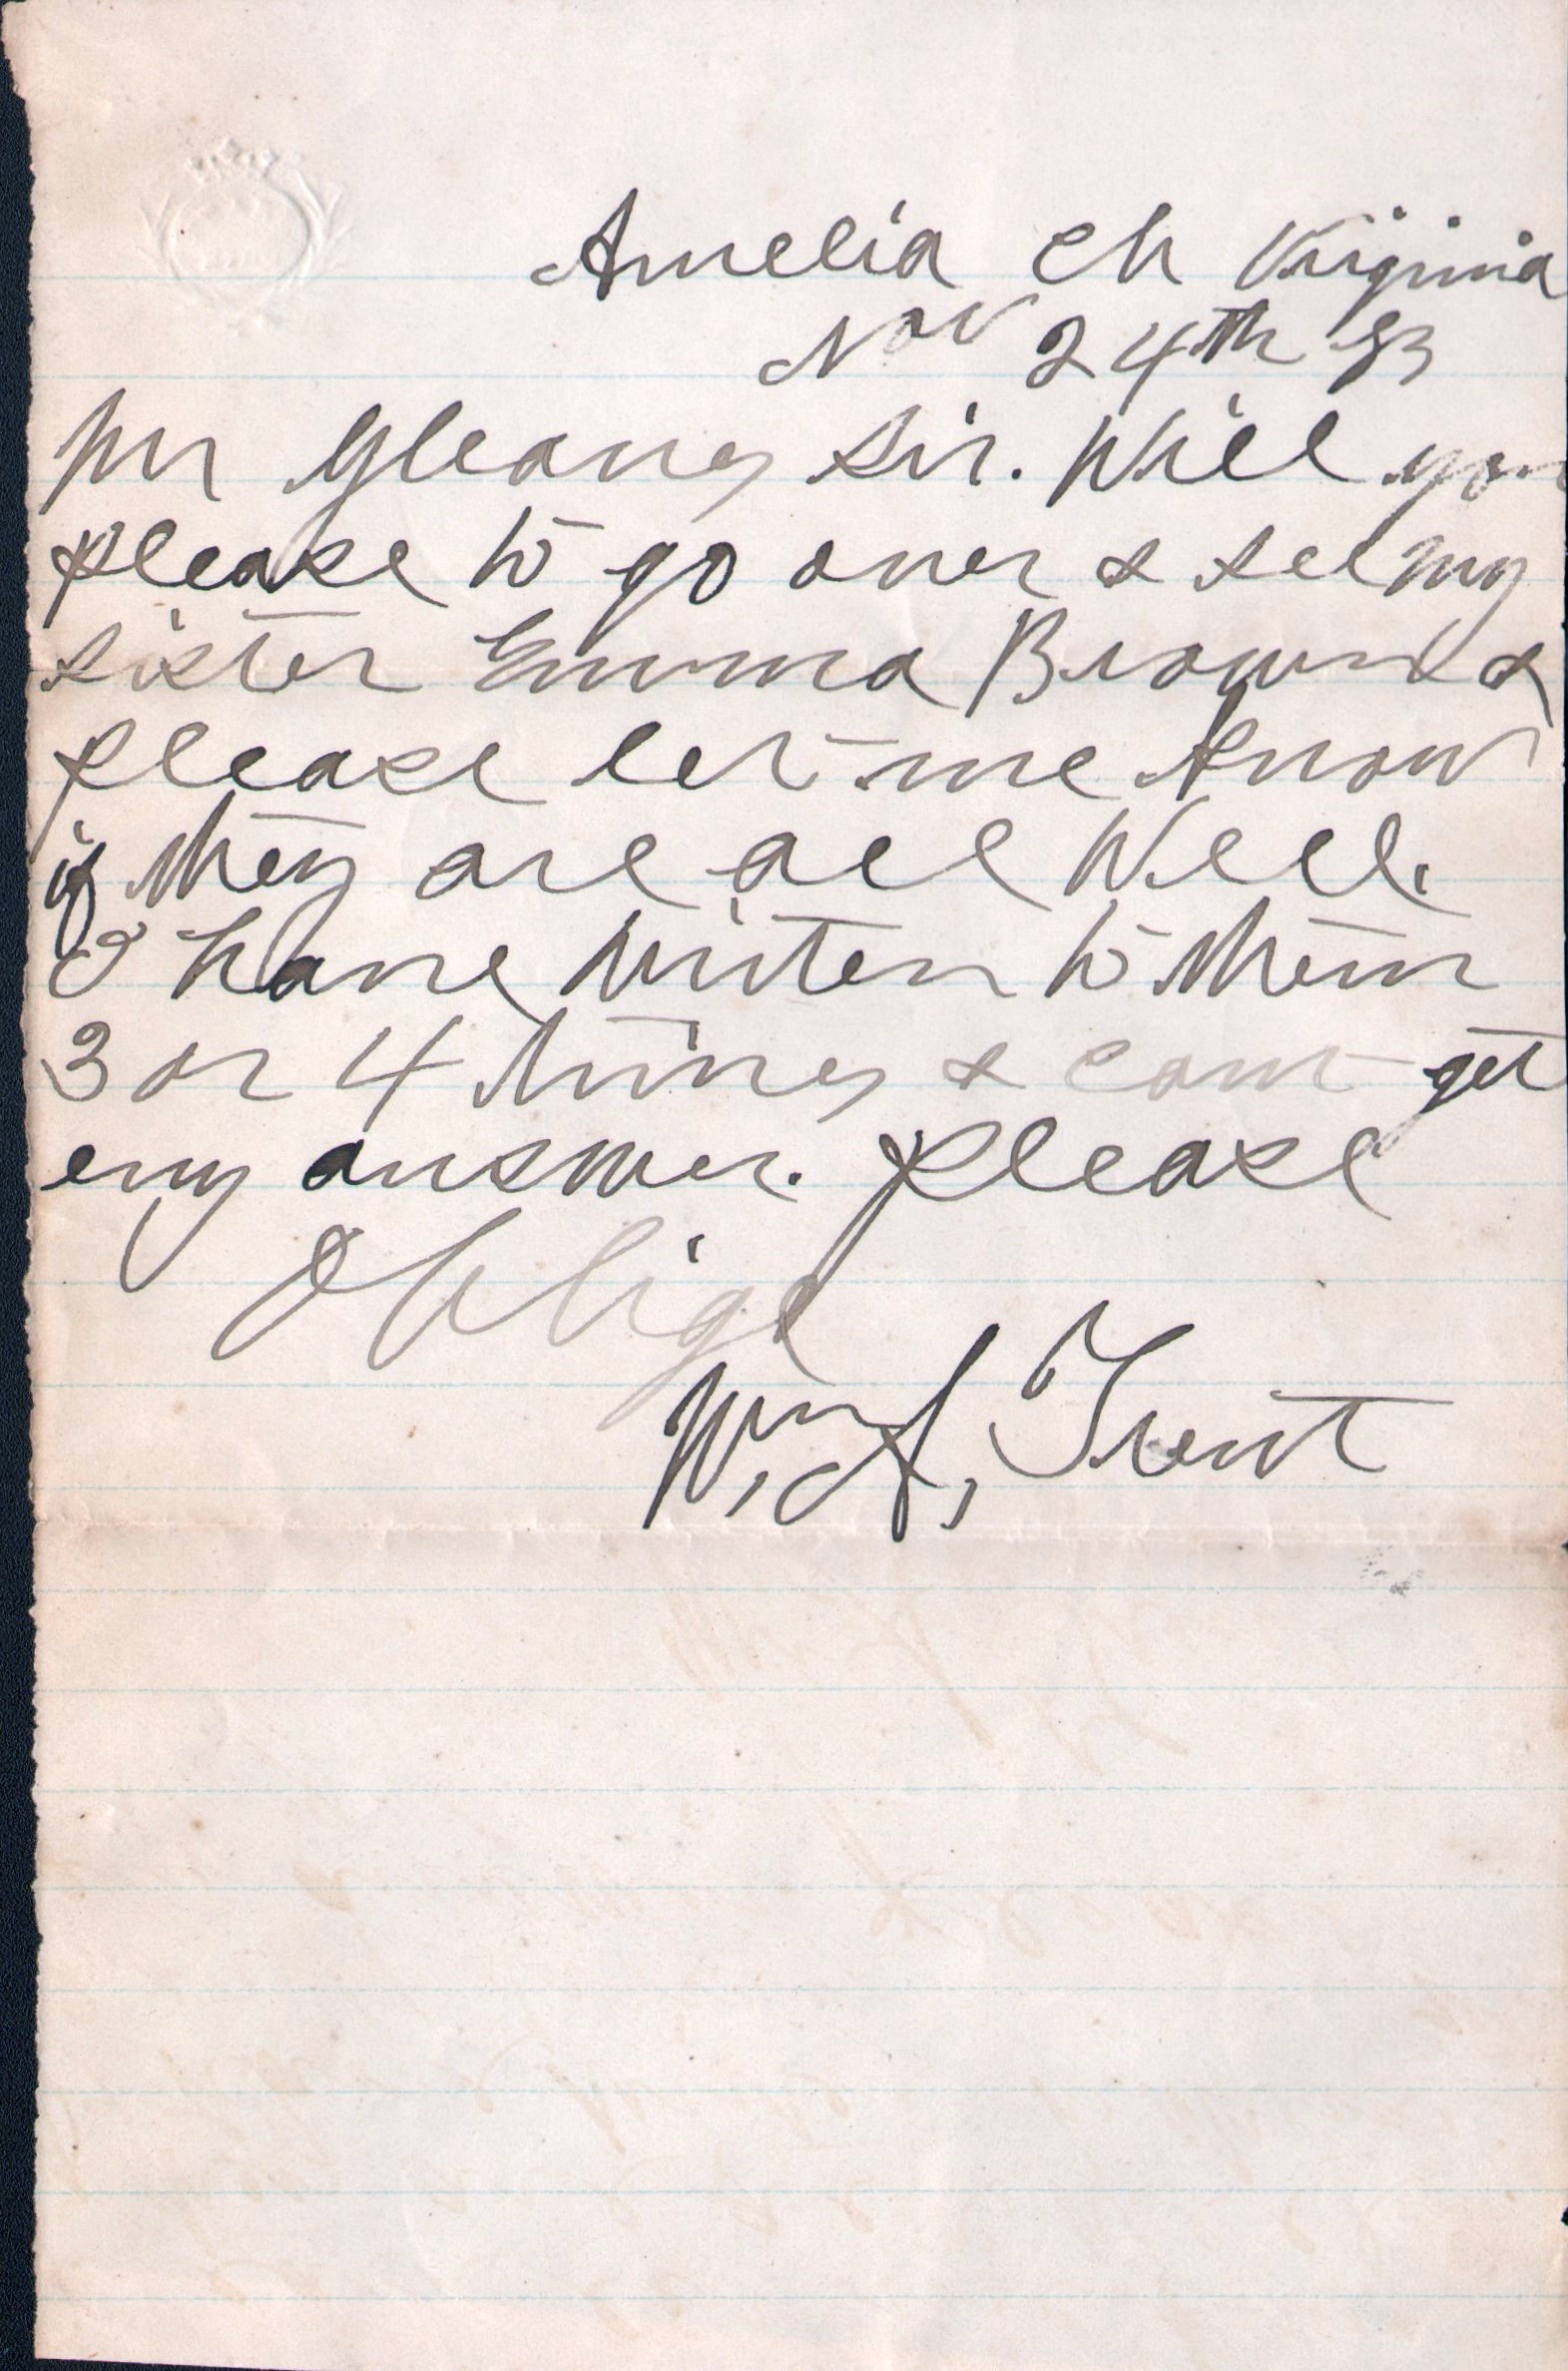 Amelia Ch Virginia
Nov 24th 83
Mr Gleaves Sir. Will you
please to go over & see my
sister Emma Brown &
please let me know
if they are all Well.
I have Writen to them
3 or 4 times & cant get
eny answer. please
Oblige
Wm, A, Trent